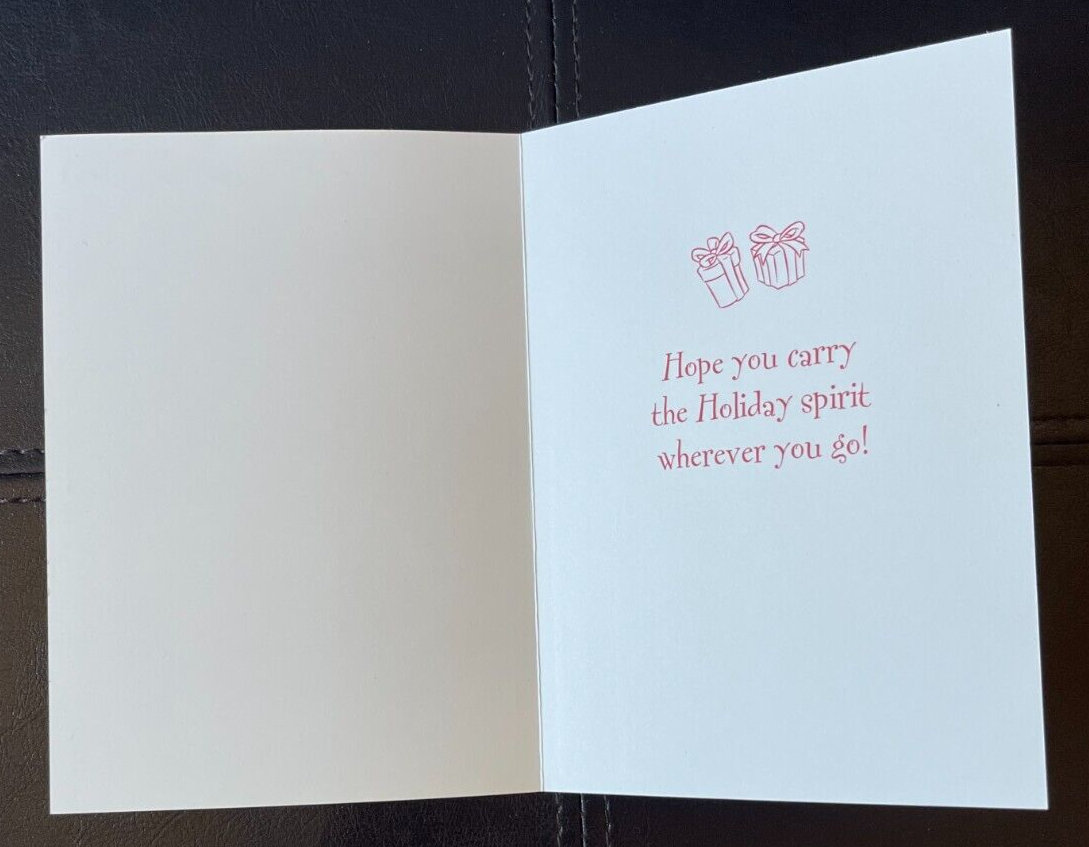 Hope you carry
the Holiday spirit
wherever you go!